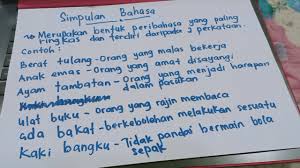 Simpulan Bahasa
↳ Merupakan bentuk peribahasa yang paling
ringkas dan terdiri daripada 2 perkataan.
Contoh:
Berat tulang - Orang yang malas bekerja
Anak emas - Orang yang amat disayangi
Ayam tambatan - Orang yang menjadi harapan
dalam pasukan
Ulat buku - Orang yang rajin membaca
ada bakat - berkebolehan melakukan sesuatu
Kaki bangku - Tidak pandai bermain bola
sepak